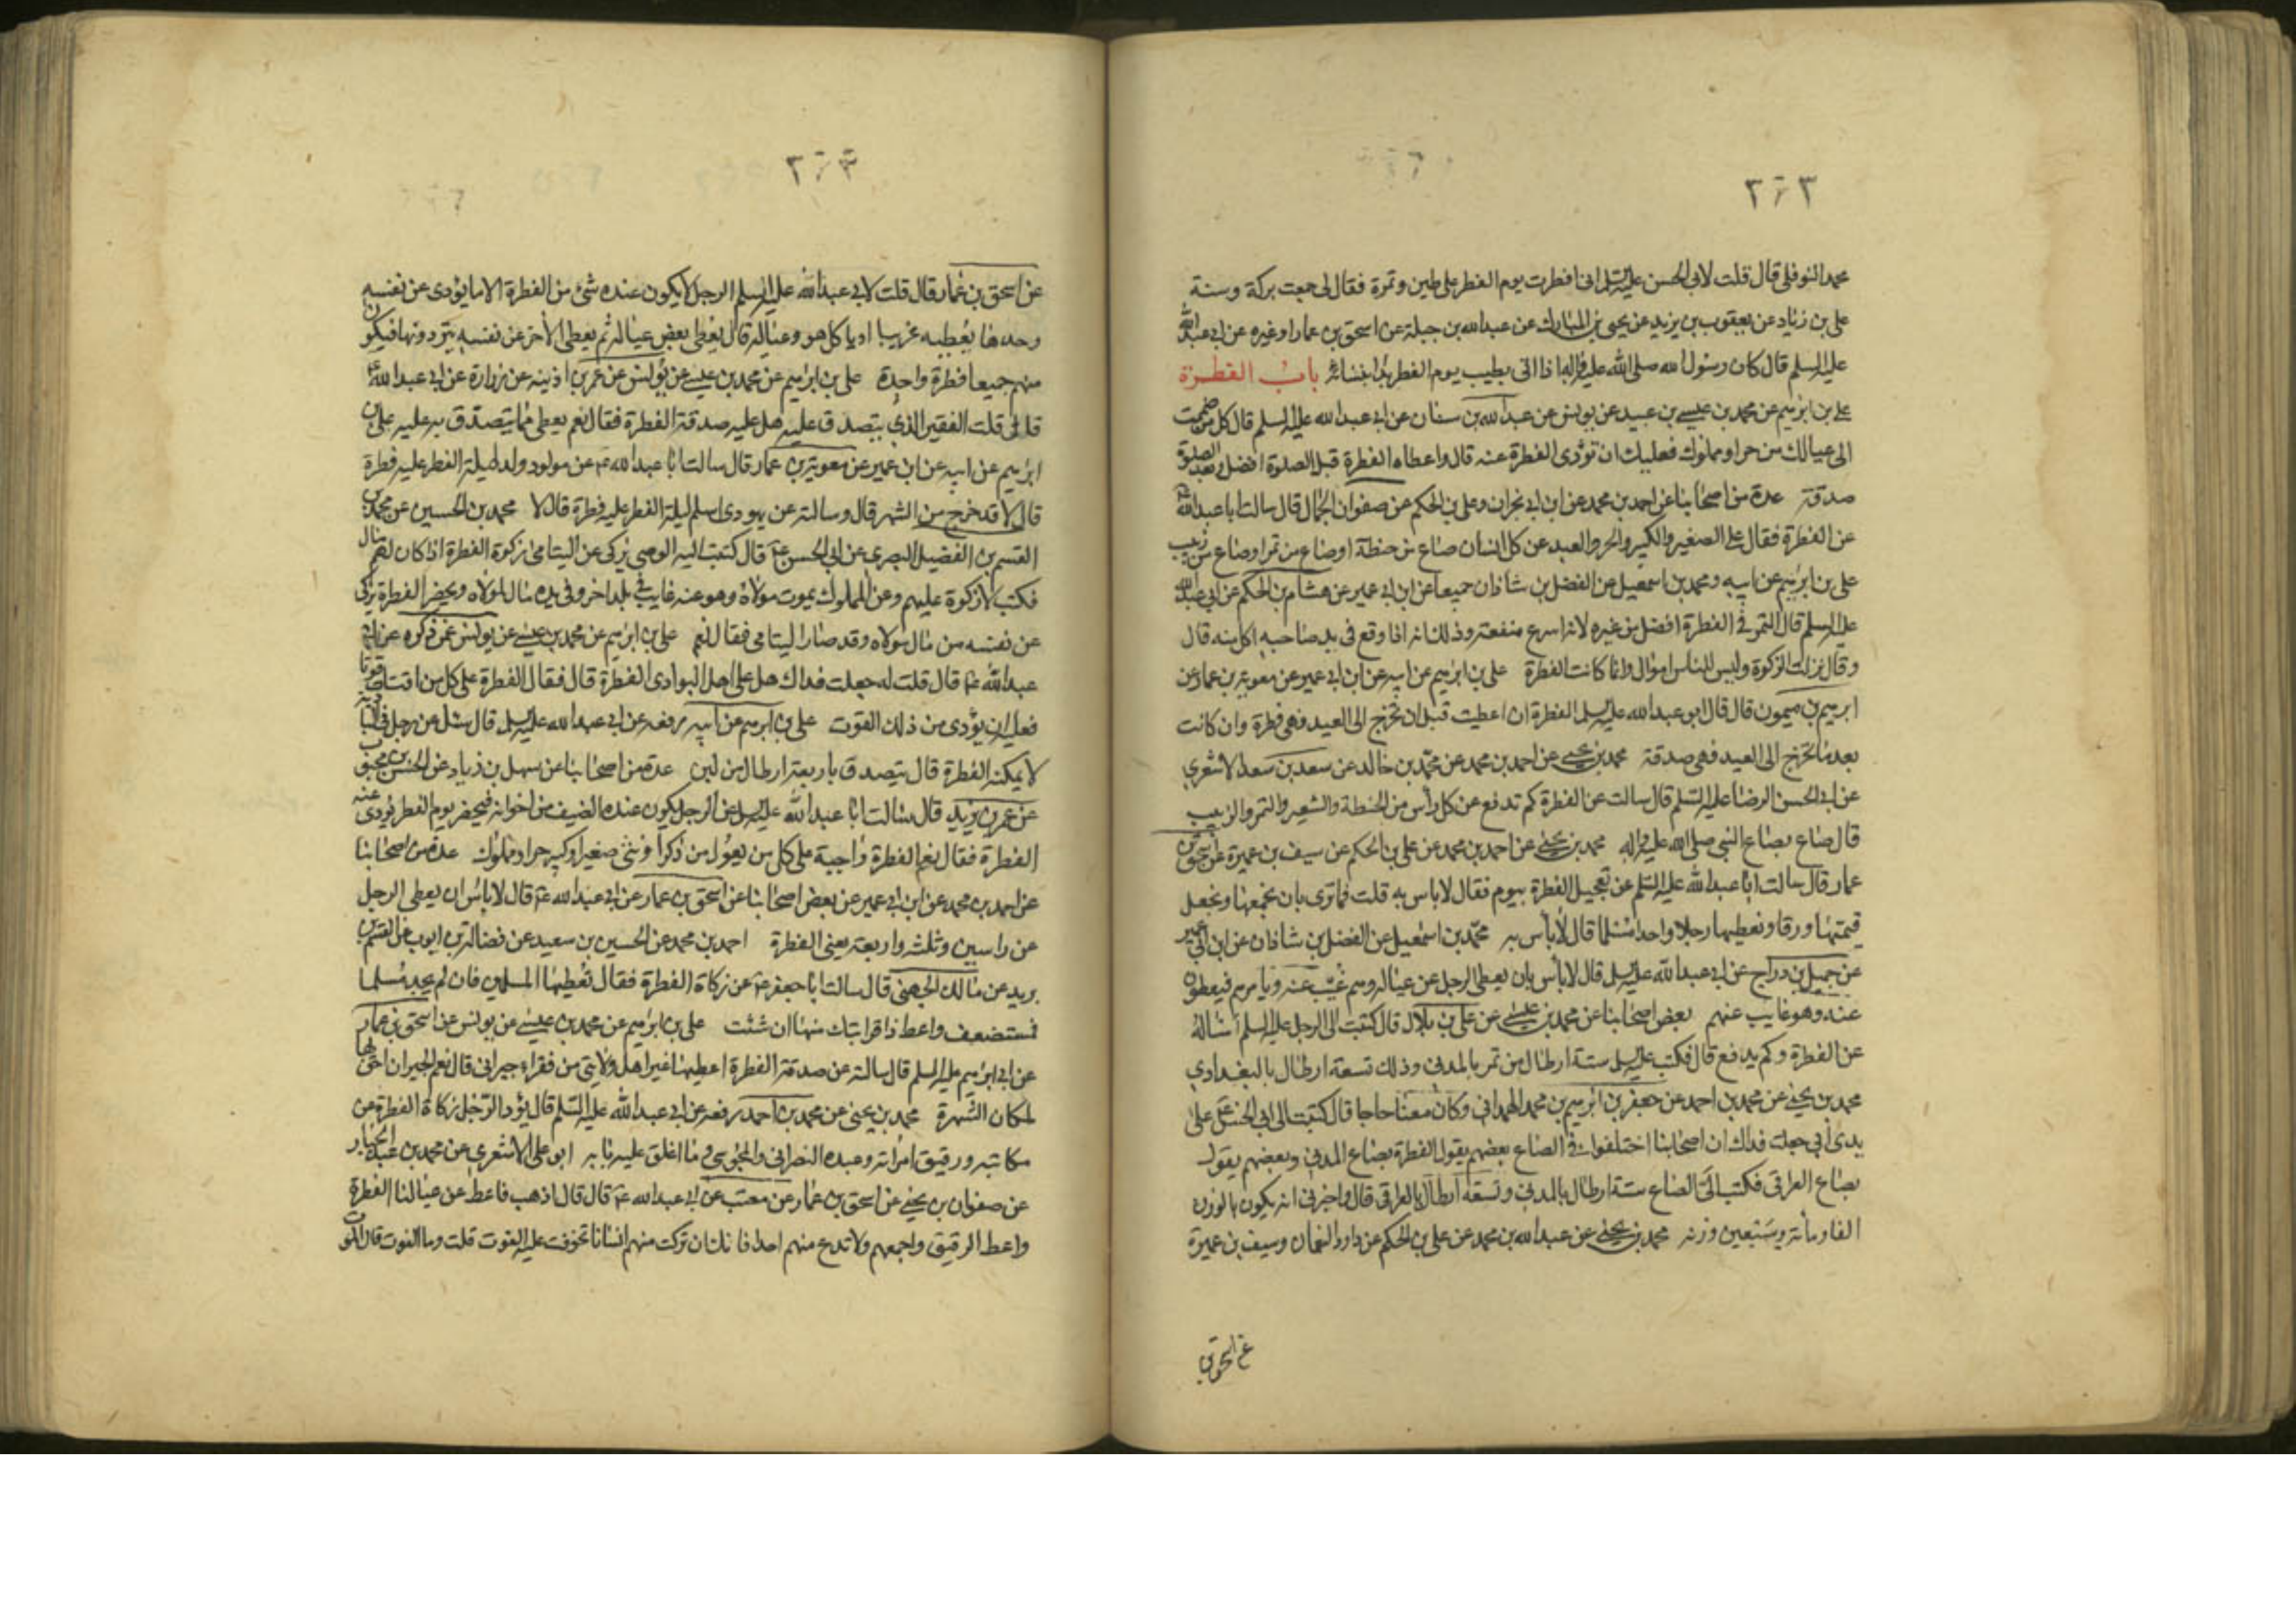 ٣٠٣
محمد النوفلى قال قلت لابى الحسن عليه السلم انى افطرت يوم الفطر على طين وتمرة فقال لى جمعت بركة وسنة
على بن زياد عن يعقوب بن يزيد عن يحيى بن المبارك عن عبد الله بن جبلة عن اسحق بن عمار او غيره عن ابى عبد الله
عليه السلم قال كان رسول الله صلى الله عليه واله اذا اتى بطيب يوم الفطر بدا بنسائه باب الفطرة
على بن ابرهيم عن محمد بن عيسى بن عبيد عن يونس عن عبد الله بن سنان عن ابى عبد الله عليه السلم قال كل من ضممت
الى عيالك من حر او مملوك فعليك ان تؤدى الفطرة عنه قال واعطاء الفطرة قبل الصلوة افضل وبعد الصلوة
صدقة عدة من اصحابنا عن احمد بن محمد عن ابن ابى نجران وعلى بن الحكم عن صفوان الجمال قال سالت ابا عبد الله ع
عن الفطرة فقال على الصغير والكبير والحر والعبد عن كل انسان صاع من حنطة او صاع من تمر او صاع من زبيب
على بن ابرهيم عن ابيه ومحمد بن اسمعيل عن الفضل بن شاذان جميعا عن ابن ابى عمير عن هشام بن الحكم عن ابى عبد الله
عليه السلم قال التمر فى الفطرة افضل من غيره لانه اسرع منفعة وذلك انه اذا وقع فى يد صاحبه اكل منه قال
وقال نزلت الزكوة وليس للناس اموال وانما كانت الفطرة على بن ابرهيم عن ابيه عن ابن ابى عمير عن معوية بن عمار عن
ابرهيم بن ميمون قال قال ابو عبد الله عليه السلم الفطرة ان اعطيت قبل ان تخرج الى العيد فهى فطرة وان كانت
بعد ما تخرج الى العيد فهى صدقة محمد بن يحيى عن احمد بن محمد عن محمد بن خالد عن سعد بن سعد الاشعرى
عن ابى الحسن الرضا عليه السلم قال سالت عن الفطرة كم تدفع عن كل رأس من الحنطة والشعير والتمر والزبيب
قال صاع بصاع النبى صلى الله عليه واله محمد بن يحيى عن احمد بن محمد عن على بن الحكم عن سيف بن عميرة عن اسحق بن
عمار قال سالت ابا عبد الله عليه السلم عن تعجيل الفطرة بيوم فقال لا باس به قلت فما ترى بان نجمعها ونجعل
قيمتها ورقا ونعطيها رجلا واحدا مسلما قال لا بأس به محمد بن اسمعيل عن الفضل بن شاذان عن ابن ابى عمير
عن جميل بن دراج عن ابى عبد الله عليه السلم قال لا بأس بان يعطى الرجل عن عياله وهم غيب عنه ويأمرهم فيعطون
عنه وهو غايب عنهم بعض اصحابنا عن محمد بن عيسى عن على بن بلال قال كتبت الى الرجل عليه السلم اساله
عن الفطرة وكم يدفع قال فكتب عليه السلم ستة ارطال من تمر بالمدنى وذلك تسعة ارطال بالبغدادى
محمد بن يحيى عن محمد بن احمد عن جعفر بن ابرهيم بن محمد الهمدانى وكان معنا حاجا قال كتبت الى ابى الحسن ع على
يدى ابى جعلت فداك ان اصحابنا اختلفوا فى الصاع بعضهم يقول الفطرة بصاع المدنى وبعضهم يقول
بصاع العراقى فكتب الى الصاع ستة ارطال بالمدنى وتسعة ارطال بالعراقى قال واخبرنى انه يكون بالوزن
الفا ومائة وسبعين وزنه محمد بن يحيى عن عبد الله بن محمد عن على بن الحكم عن داود النعمان وسيف بن عميرة
عن اسحق بن عمار قال قلت لابى عبد الله عليه السلم الرجل لا يكون عنده شىء من الفطرة الا ما يؤدى عن نفسه
وحدها يعطيه غريبا او ياكل هو وعياله قال يعطى بعض عياله ثم يعطى الآخر عن نفسه يترددونها فيكون
منهم جميعا فطرة واحدة على بن ابرهيم عن محمد بن عيسى عن يونس عن عمر بن اذينه عن زرارة عن ابى عبد الله ع
قال قلت الفقير الذى يتصدق عليه هل عليه صدقة الفطرة فقال نعم يعطى مما يتصدق به عليه على بن
ابرهيم عن ابيه عن ابن عمير عن معوية بن عمار قال سالت ابا عبد الله ع عن مولود ولد ليلة الفطر عليه فطرة
قال لا قد خرج من الشهر قال وسالته عن يهودى اسلم ليلة الفطر عليه فطرة قال لا محمد بن الحسين عن محمد بن
القسم بن الفضيل البصرى عن ابى الحسن ع قال كتبت اليه الوصى يزكى عن اليتامى زكوة الفطرة اذا كان لهم مال
فكتب لا زكوة عليهم وعن المملوك يموت مولاه وهو عنه غايب فى بلد اخر وفى يده مال لمولاه ويحضر الفطرة يزكى
عن نفسه من مال مولاه وقد صار لليتامى فقال نعم على بن ابرهيم عن محمد بن عيسى عن يونس عمن ذكره عن ابى
عبد الله ع قال قلت له جعلت فداك هل على اهل البوادى الفطرة قال فقال الفطرة على كل من اقتات قوتا
فعليه ان يؤدى من ذلك القوت على بن ابرهيم عن ابيه رفعه عن ابى عبد الله عليه السلم قال سئل عن رجل فى البادية
لا يمكنه الفطرة قال يتصدق باربعة ارطال من لبن عدة من اصحابنا عن سهل بن زياد عن الحسن بن محبوب
عن عمر بن يزيد قال سالت ابا عبد الله عليه السلم عن الرجل يكون عنده الضيف من اخوانه فيحضر يوم الفطر يؤدى عنه
الفطرة فقال نعم الفطرة واجبة على كل من يعول من ذكر او انثى صغير او كبير حر او مملوك عدة من اصحابنا
عن احمد بن محمد عن ابن ابى عمير عن بعض اصحابنا عن اسحق بن عمار عن ابى عبد الله ع قال لا باس ان يعطى الرجل
عن راسين وثلثه واربعة يعنى الفطرة احمد بن محمد عن الحسين بن سعيد عن فضالة بن ايوب عن القسم بن
بريد عن مالك الجهنى قال سالت ابا جعفر ع عن زكاة الفطرة فقال تعطيها المسلمين فان لم يجد مسلما
فمستضعف واعط ذا قرابتك منها ان شئت على بن ابرهيم عن محمد بن عيسى عن يونس عن اسحق بن عمار
عن ابى ابرهيم عليه السلم قال سالته عن صدقة الفطرة اعطيها غير اهل ولايتى من فقراء جيرانى قال نعم الجيران احق بها
لمكان الشهرة محمد بن يحيى عن محمد بن احمد رفعه عن ابى عبد الله عليه السلم قال يؤد الرجل زكاة الفطرة عن
مكاتبه ورقيق امراته وعبده النصرانى والمجوسى وما اغلق عليه بابه ابو على الاشعرى عن محمد بن عبد الجبار
عن صفوان بن يحيى عن اسحق بن عمار عن معتب عن ابى عبد الله ع قال قال اذهب فاعط عن عيالنا الفطرة
واعط الرقيق واجمعهم ولا تدع منهم احدا فانك ان تركت منهم انسانا تخوفت عليه الفوت قلت وما الفوت قال الموت